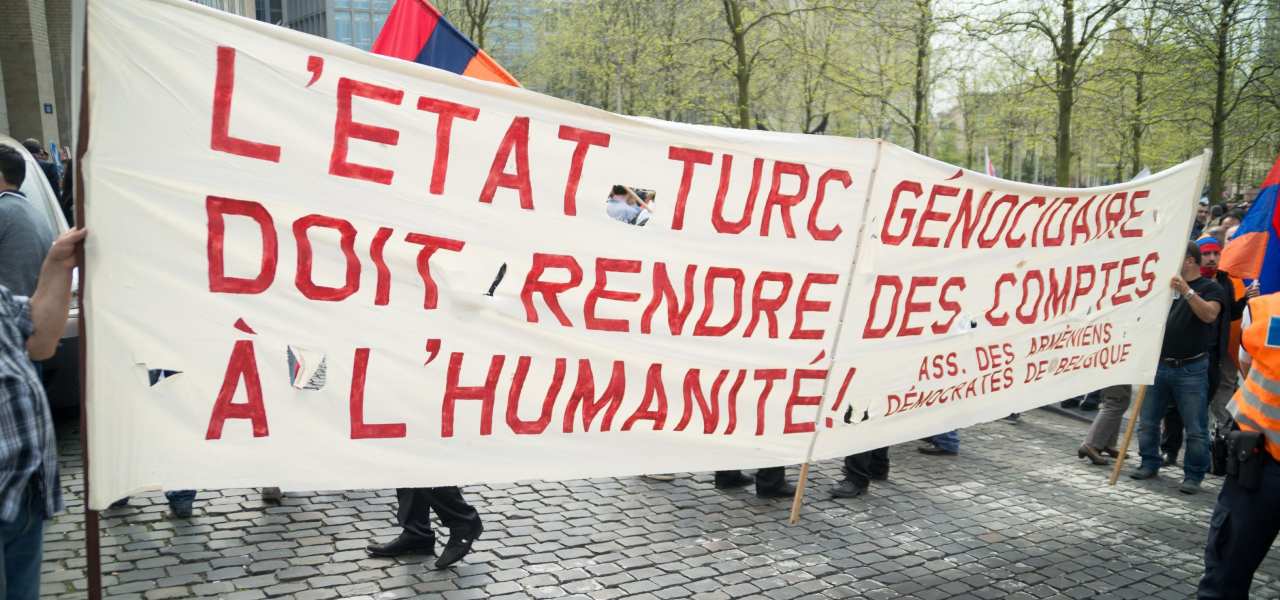 L'ETAT TURC GÉNOCIDAIRE
DOIT RENDRE DES COMPTES
À L'HUMANITÉ!
ASS. DES ARMÉNIENS
DÉMOCRATES DE BELGIQUE